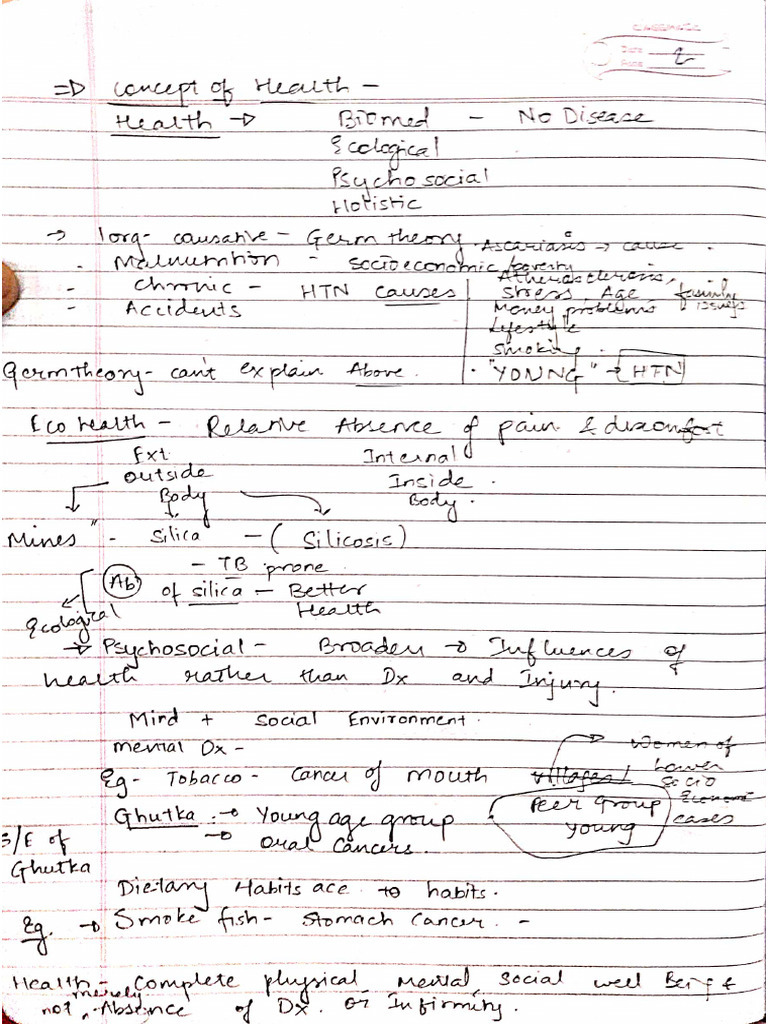 CLASSMATE
Date
Page 2
=> Concept of Health -
Health -> Biomed - No Disease
Ecological
Psychosocial
Holistic
-> 1 org- causative - Germ theory Ascariasis -> cause .
- Malnutrition - Socioeconomic/poverty
- Chronic - HTN causes Atherosclerosis,
Stress, Age family
- Accidents Money problems issues
Lifestyle
Smoking.
Germ theory- can't explain Above. . "YOUNG" -> HTN
Eco health - Relative Absence of pain & discomfort
Ext Internal
outside Inside .
Body Body .
Mines" - Silica - (Silicosis)
- TB prone
Ab of silica - Better
Health
Ecological
-> Psychosocial - Broaden -> Influences of
health rather than Dx and Injury.
Mind + Social Environment.
mental Dx - Women of
Eg- Tobacco- Cancer of mouth villages Lower
Socio
Economic
cases
Ghutka :-> Young age group Peer Group
young
-> Oral Cancers.
S/E of
Ghutka
Dietary Habits ace to habits.
Eg. -> Smoke fish- Stomach Cancer. -
Health - Complete physical Mental, Social well Being &
not merely Absence of Dx. or Infirmity.